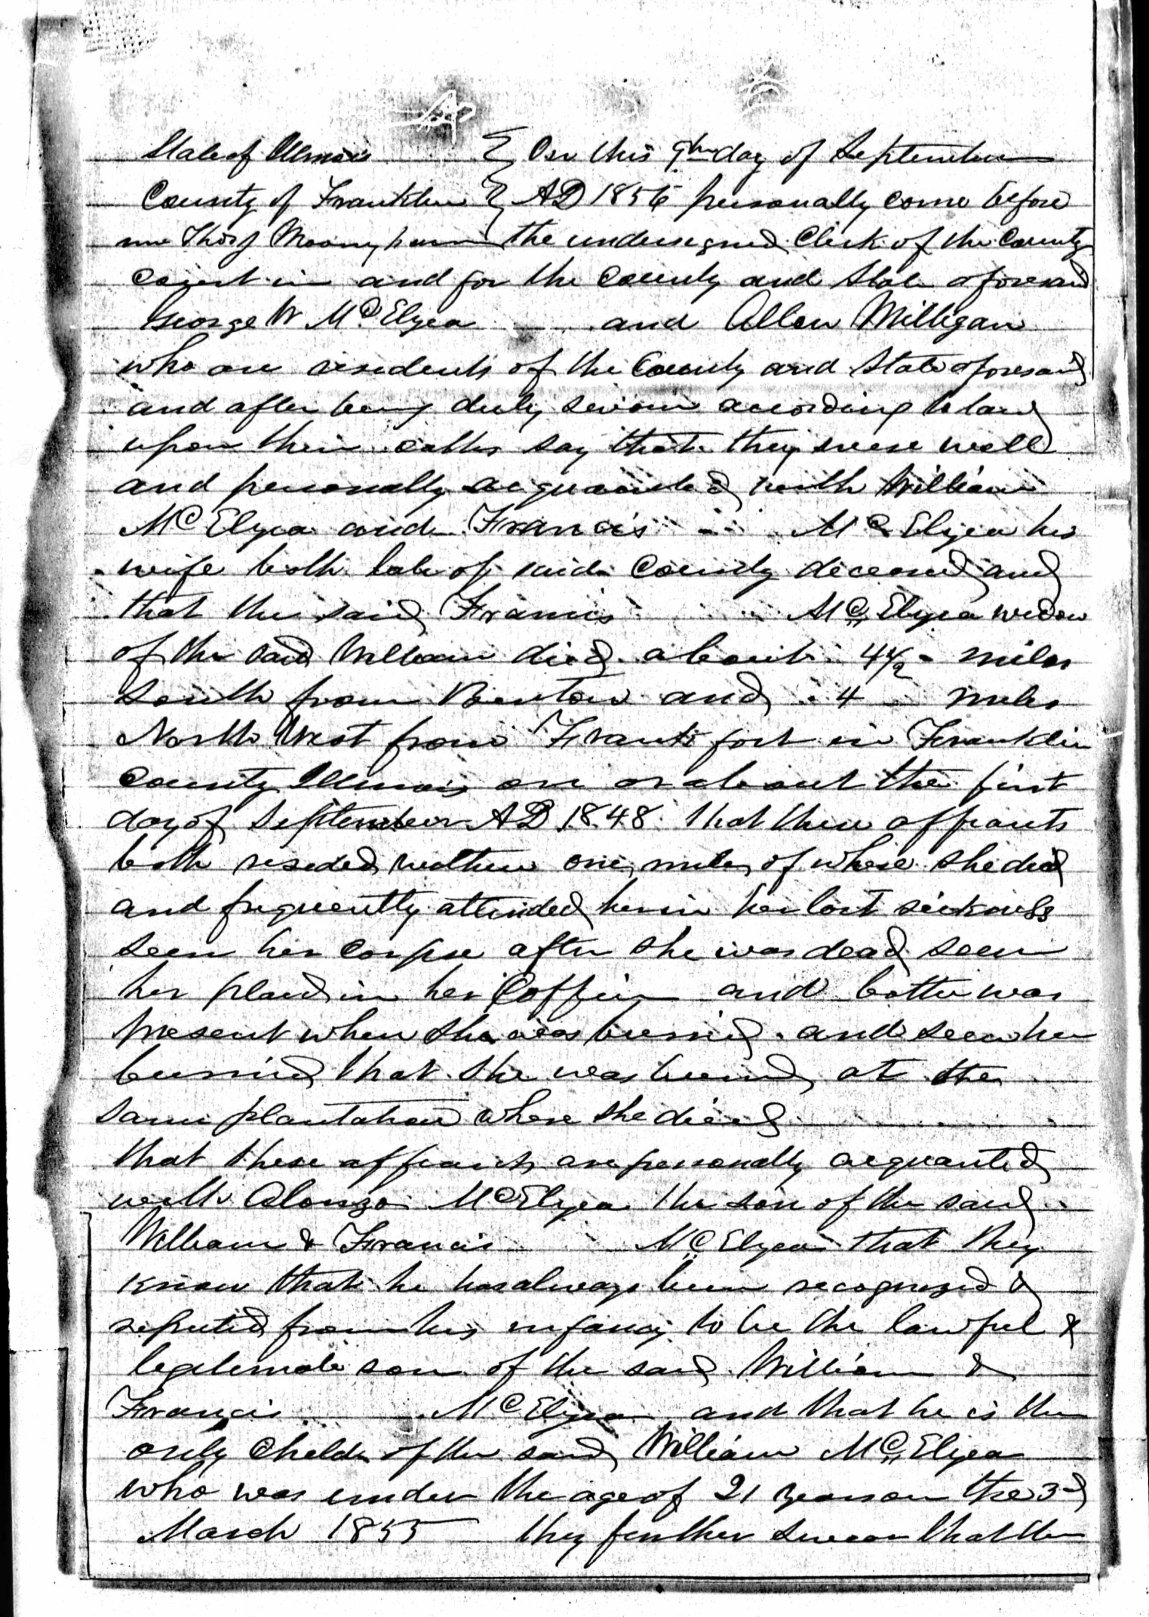 State of Illinois } On this 9th day of September
County of Franklin } AD 1856 personally come before
me Thos J Mooneyham the undersigned Clerk of the County
Court in and for the County and State aforesaid
George W McElyea and Allen Milligan
who are residents of the County and State aforesaid
and after being duly sworn according to law
upon their oaths say that they were well
and personally acquainted with William
McElyea and Francis McElyea his
wife both late of said County deceased and
that the said Francis McElyea widow
of the said William died about 4 1/2 miles
South from Benton and 4 miles
North West from Frankfort in Franklin
County Illinois on or about the first
day of September AD 1848 that these affiants
both resided within one mile of where she died
and frequently attended her in her last sickness
seen her corpse after she was dead seen
her placed in her Coffin and both was
present when she was burried and seen her
burried that she was burried at the
same plantation where she died
that these affiants are personally acquanted
with Alonzo McElyea the son of the said
William & Francis McElyea that they
know that he has always been recognized &
reputed from his infancy to be the lawful &
legitimate son of the said William &
Francis McElyea and that he is the
only Child of the said William McElyea
who was under the age of 21 years on the 3d
March 1855 they further swear that the